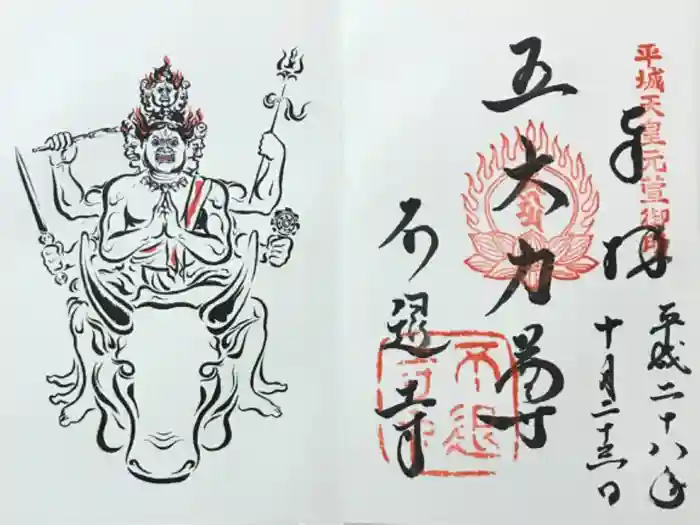 平城天皇元萱御所
奉拝
平成二十八年
十月二十日
五大力尊
不退寺
不退